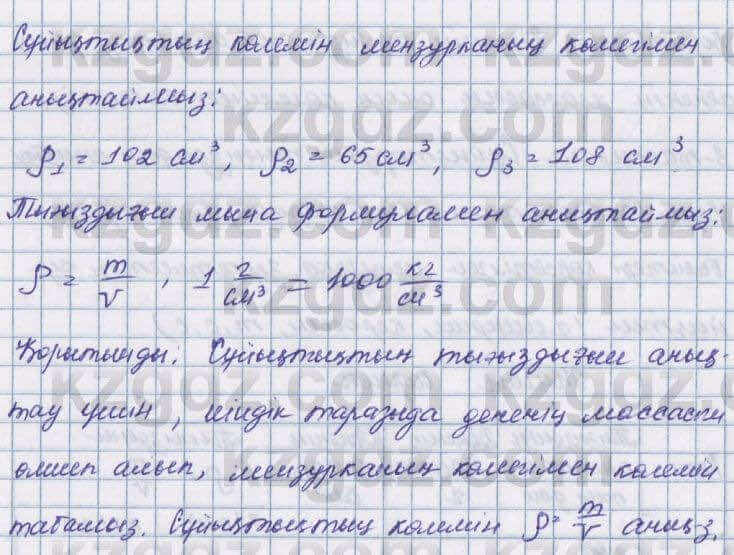 Сұйықтықтың көлемін мензурканың көмегімен
анықтаймыз:
ρ₁ = 102 см³, ρ₂ = 65 см³, ρ₃ = 108 см³
Тығыздығын мына формуламен анықтаймыз:
ρ = m/V , 1 г/см³ = 1000 кг/см³
Қорытынды. Сұйықтықтың тығыздығын анық-
тау үшін, иіндік таразыда дененің массасын
өлшеп алып, мензурканың көмегімен көлемін
табамыз. Сұйықтықтың көлемін ρ = m/V анық-з.